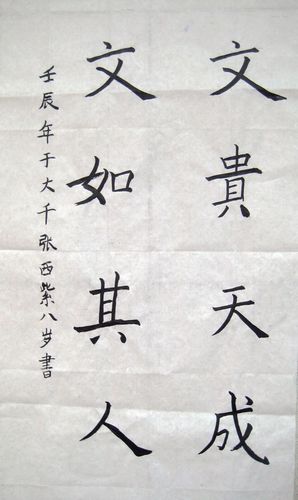 文貴天成
文如其人
壬辰年于大千张西紫八岁書